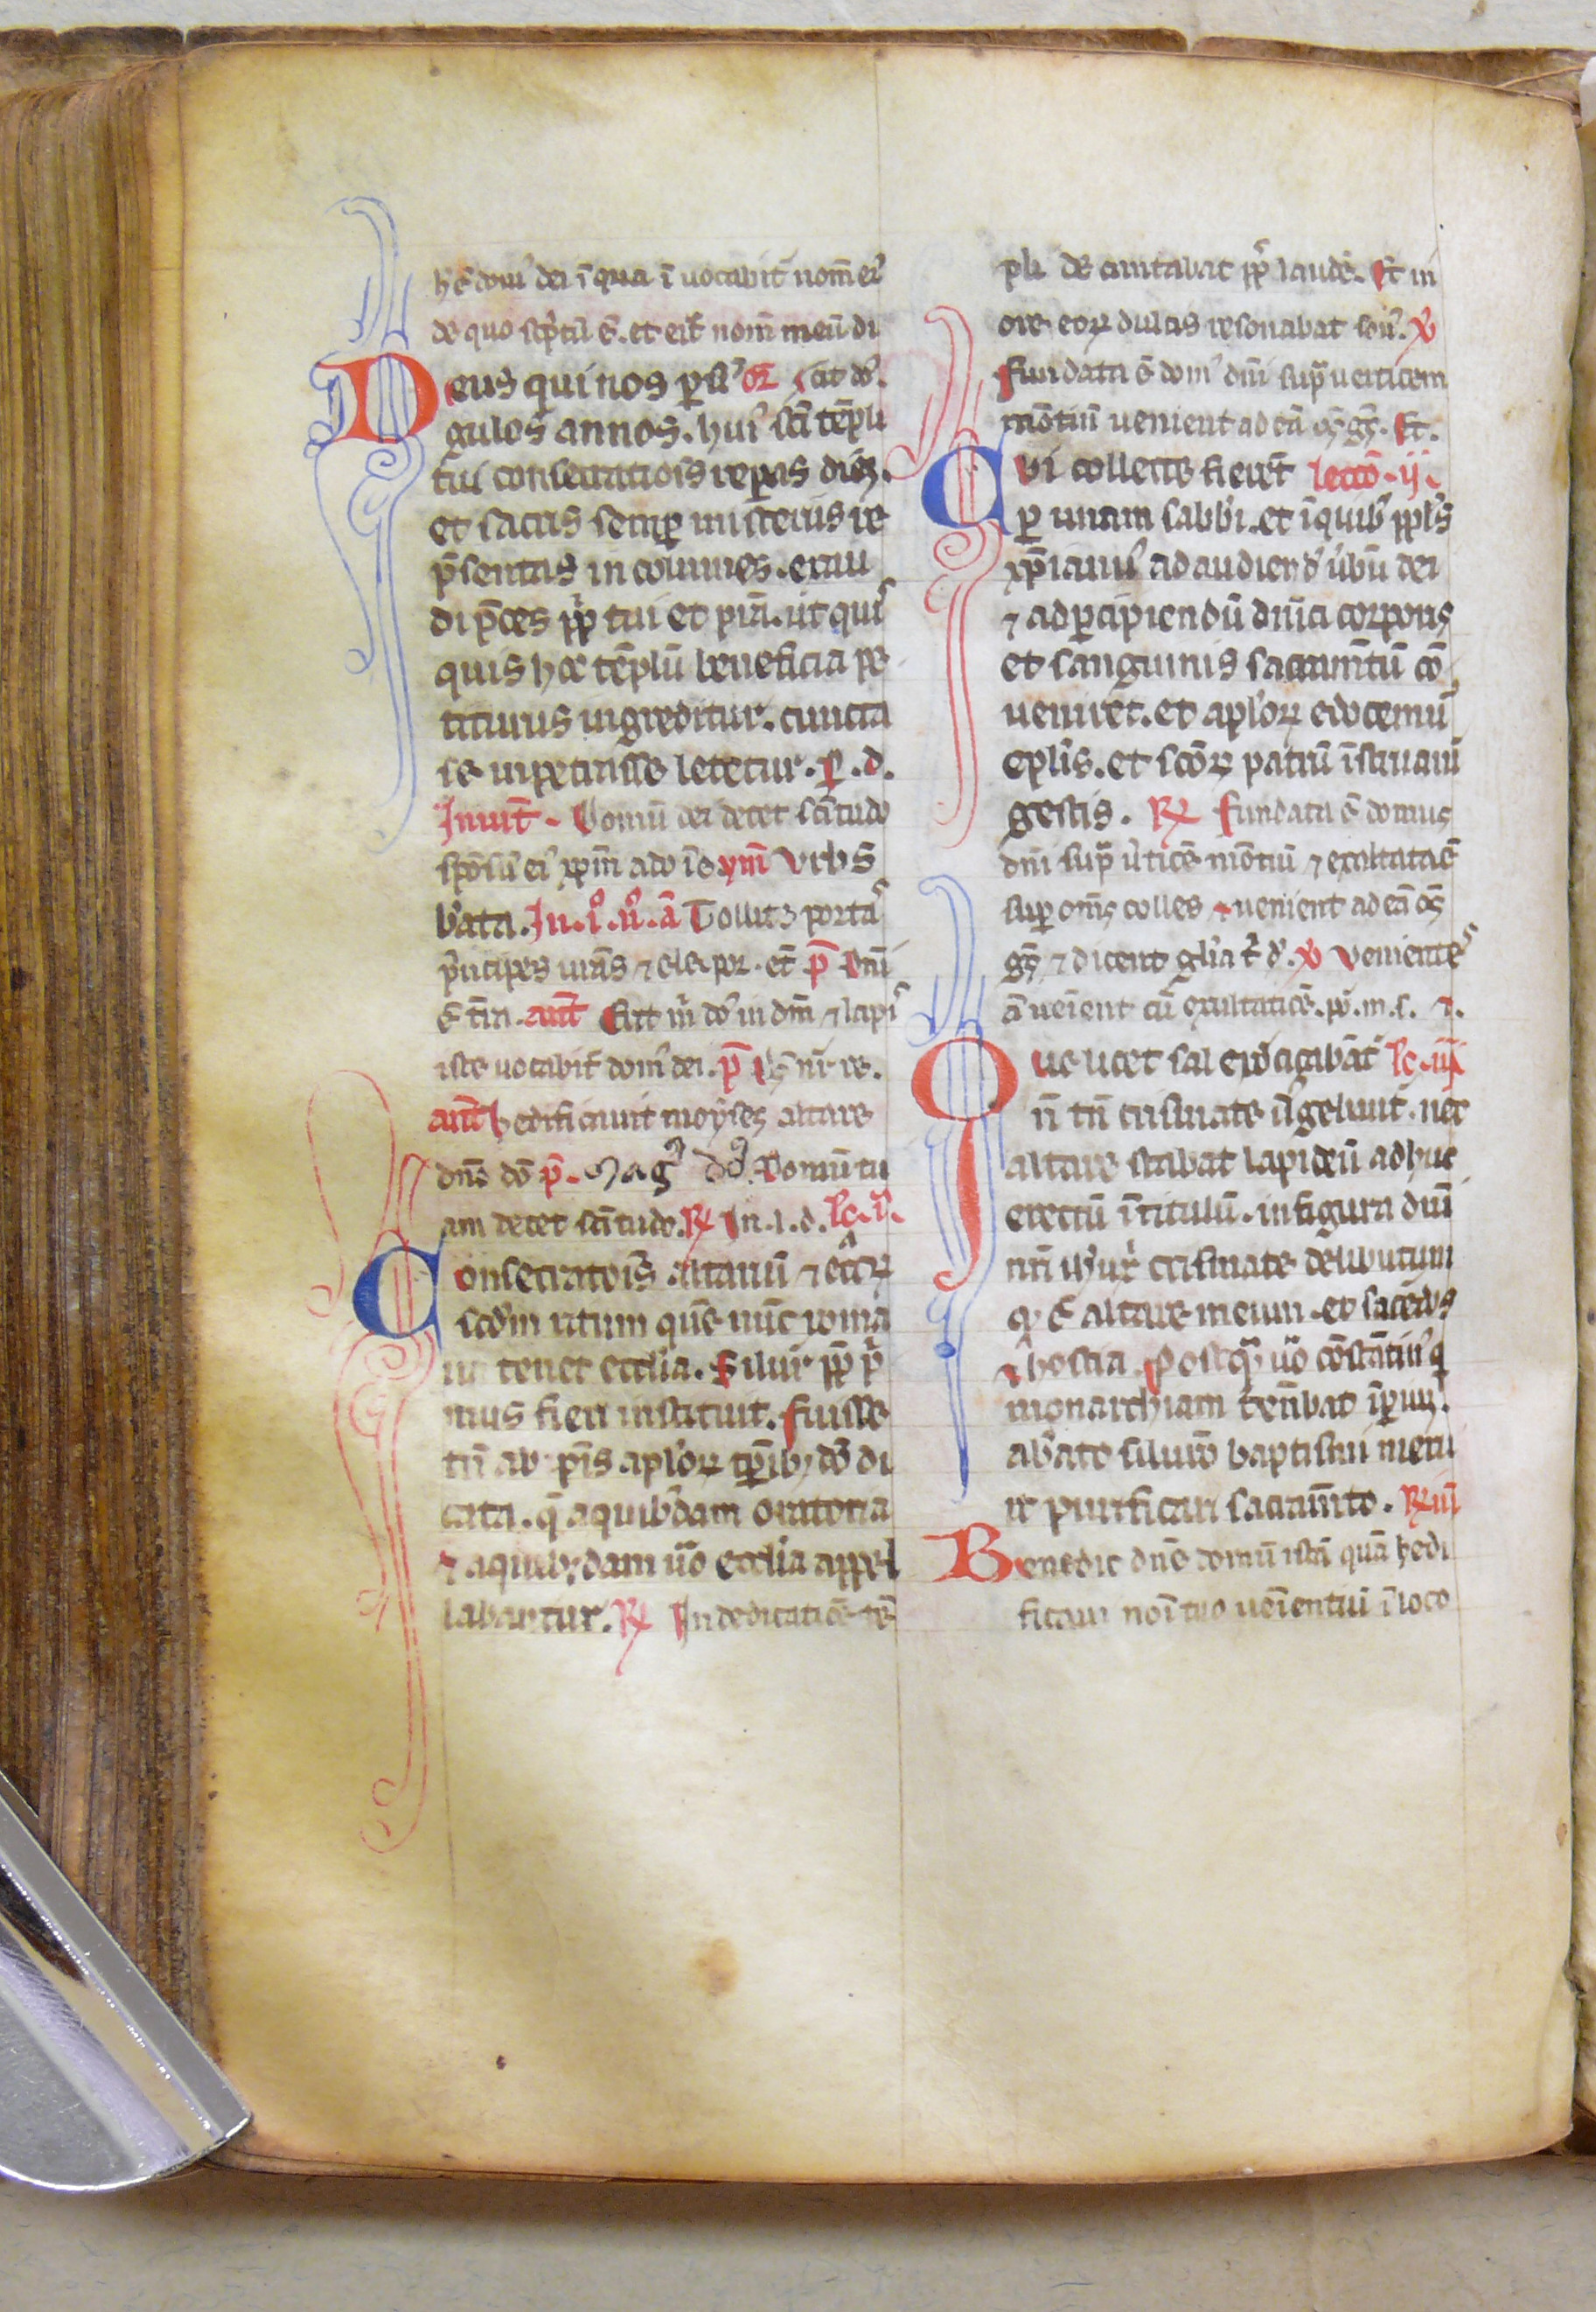 hͦ ē domꝰ dei ī qua īuocabit᷑ nom̄ eiꝰ
de quo scͥptū ē. et erit nom̄ meū di
Deus qui nos ꝑ si or̄
gulos annos. huiꝰ scī tēpli
tui consecratiois reparas diē.
et sacris semꝑ misteriis re
p̄sentas in columes. exau
di p̄ces ppl̓i tui et p̄sta. ut quis
quis hoc tēplū beneficia pe
titurus ingreditur. cuncta
se impetrasse letetur. ꝑ. d.
Inuit̄. Domū dei decet scītudo
sponsū eiꝰ xp̄m ado
ym̄ Urbs
b̓ata. In. i. n. a Tollite portas
p̓ncipes ur̄as et ele. por. p̄ Dn̄i
ē t̄ra. ant̄ Erit m̓ do in dn̄m et lapis
iste uocabit᷑ domꝰ dei. p̄ Dꝰ nr̄ re.
ant̄ hedificauit moyses altare
dn̄o dō p̄. Domū tu
am decet scītudo. ℟ In. l. d. lc̄. i.
Consecratiois altariū et eccl̓ar̄
scd̄m ritum quē nūc roma
na tenet eccl̓ia. Siluester pp̄ p̓
mus fieri instituit. fuisse
tn̄ ab ip̄is apl̓or̄ tꝑib; dō di
cata. q̄ a quibꝰdam oratoria
et a quib;dam uͦo eccl̓ia appel
labantur. ℟ In dedicatiōe tē
pli decantabat ppl̓s laudē. Et in
ore eoꝝ dulcis resonabat sonꝰ. ℣
Fundata ē domꝰ dn̄i supra uerticem
mōtiū uenient ad eā oēs gētes. Et.
Ubi collecte fierēt lectō. ij.
ꝑ unam sabb̓i. et ī quibꝰ ppl̓s
xp̄ianus ad audiendū ūbū dei
et ad ꝑcipiendū dn̄ici corporis
et sanguinis sacramn̄tū cō
ueniret. et apl̓oꝝ edocemur
expl̓is. et scōꝝ patrū īstruamur
gestis. ℟ Fundata ē domus
dn̄i supra u̓ticē mōtiū et exaltata ē
super omēs colles et uenient ad eā oēs
gētes et dicent gl̓ia t d. ℣ Uenientes
ā ueient cū exultatiōe. por. m. s.
Que licet sal edificabāt lc̄. iij
n̄ tn̄ crismate ungebant. nec
altare stabat lapideū adhuc
erectū ī titulū. in figura dn̄i
nr̄i crismate delibutum
q; ē altare meum et sacerdos
et hostia. Postqua uͦo cōstantinꝰ q
monarchiam tenebat īperii.
abeato siluestro baptismi meru
it purificari sacram̄to. ℟ iii
Benedic dn̄e domū istā quā hedi
ficaui noī tuo ueientiū ī loco